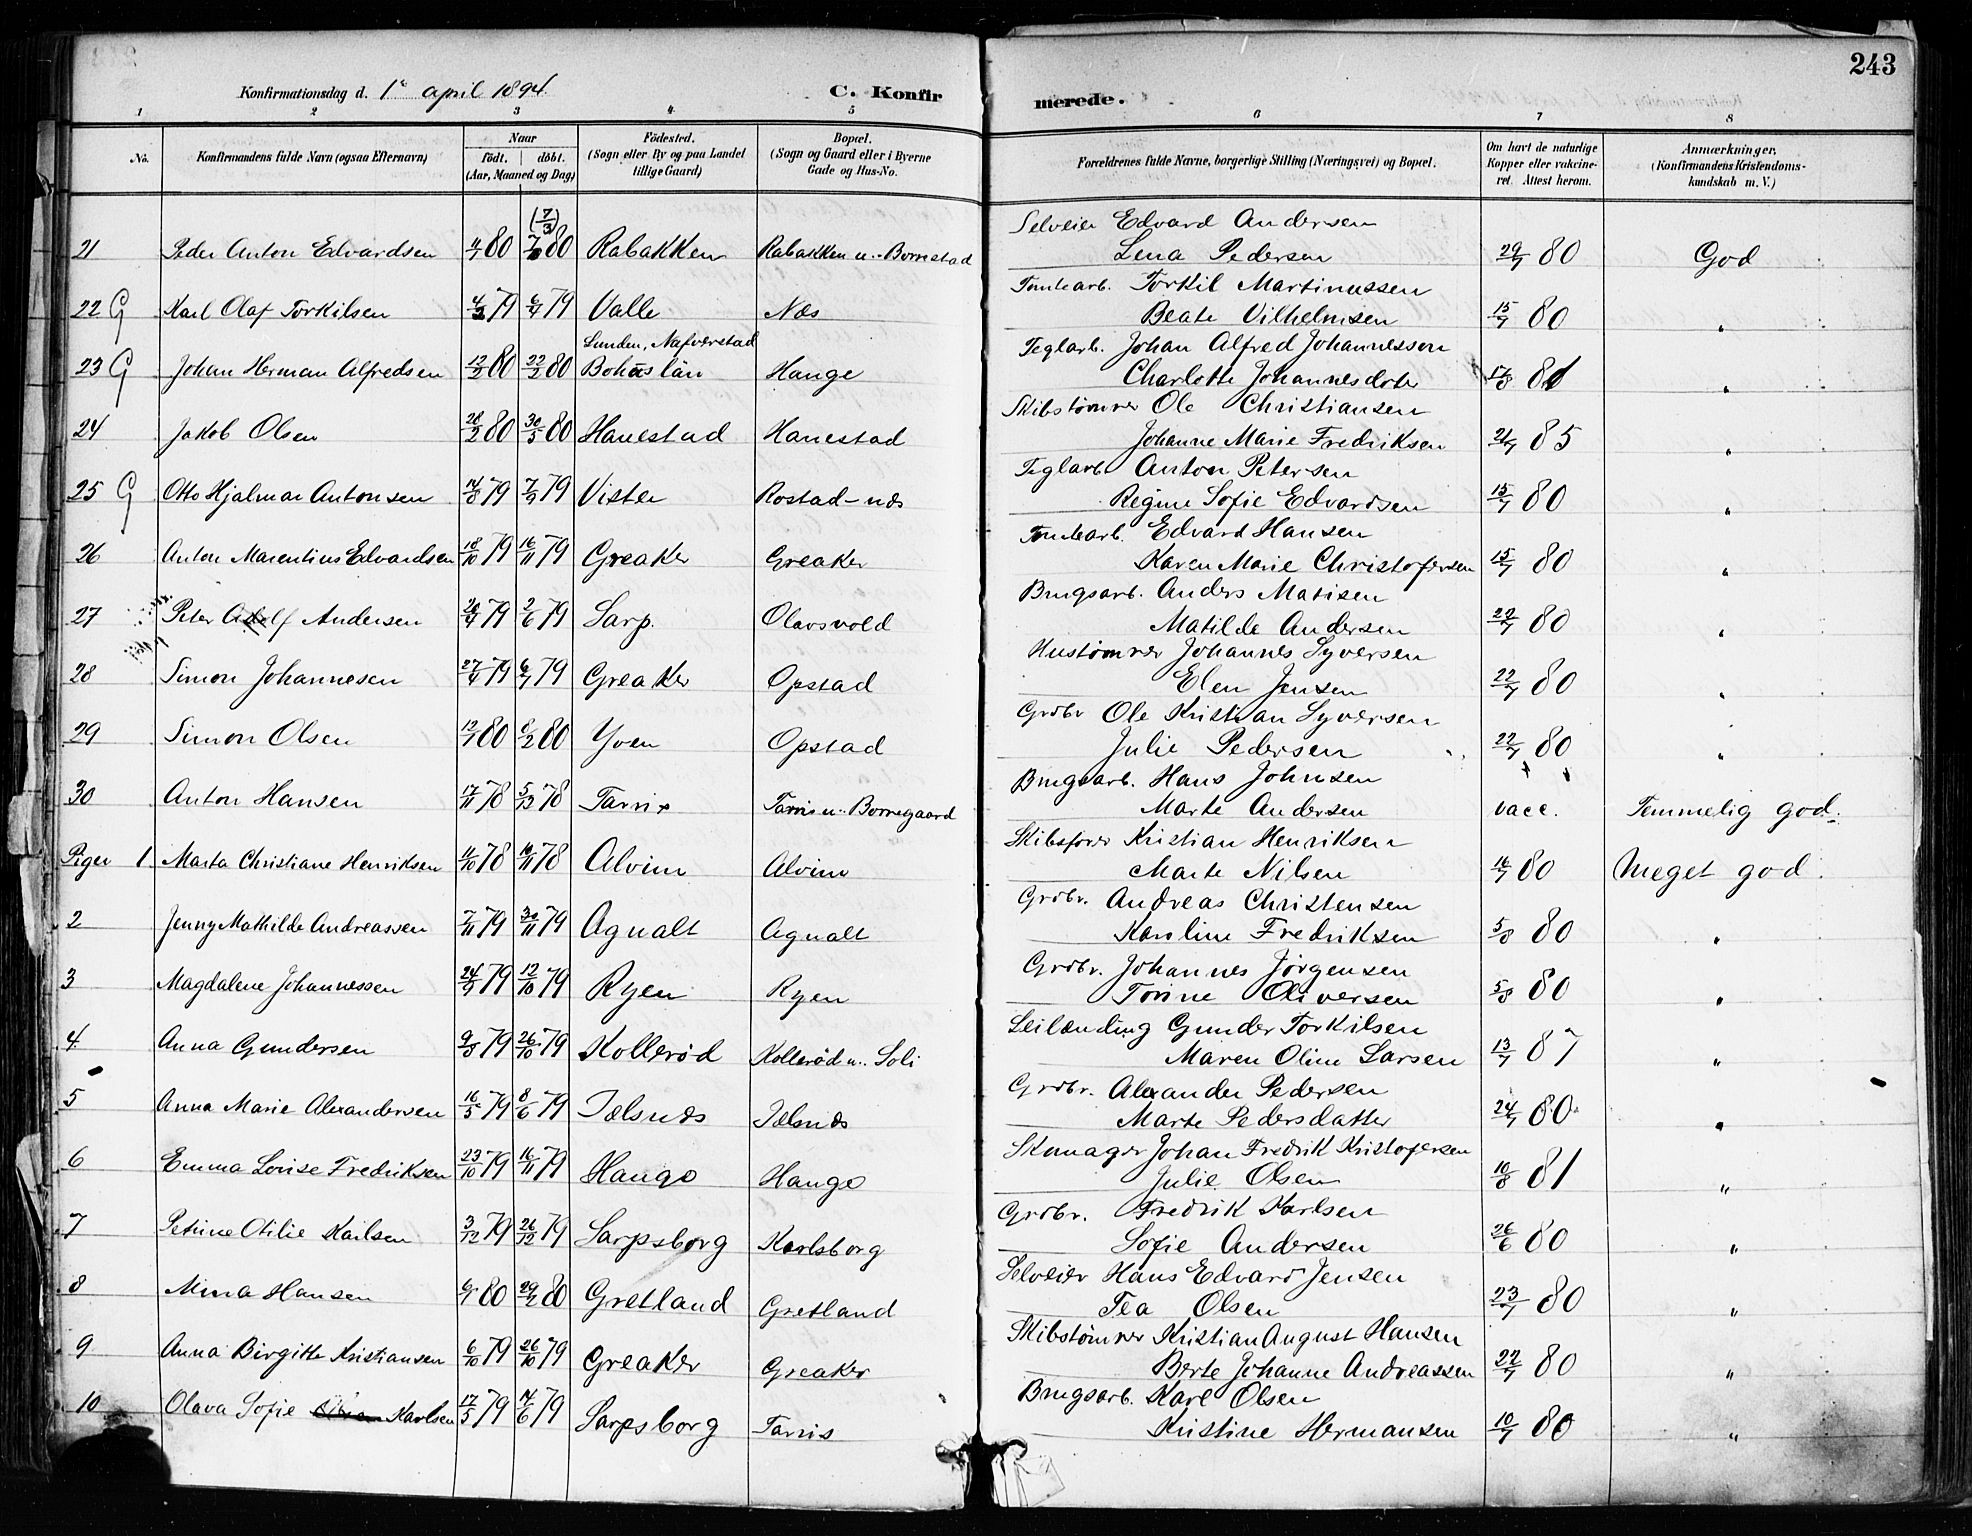 243
Konfirmationsdag d. 1ste april 1894.
C. Konfir merede.
1 2 3 4 5 6 7 8
No.
Konfirmandens fulde Navn (ogsaa Efternavn)
Naar
født. døbt.
(Aar, Maaned og Dag)
Fødested.
(Sogn eller By og paa Landet
tillige Gaard)
Bopæl.
(Sogn og Gaard eller i Byerne
Gade og Hus-No.
Forældrenes fulde Navne, borgerlige Stilling (Næringsvei) og Bopæl.
Om havt de naturlige
Kopper eller vakcine-
ret. Attest herom.
Anmærkninger,
(Konfirmandens Kristendoms-
kundskab m. V.)
(7/3)
Selveier Edvard Andersen
21 Peder Anton Edvardsen 80 80 Rabakken Rabakken u. Borrestad Lena Pedersen 29/7 80 God
Tomtearb. Torkil Martinussen
22 G Karl Olaf Torkilsen 79 6/4 79 Valle Næs Beate Vilhelmsen 15/7 80 "
Lunden, Nafverstad
Teglarb. Johan Alfred Johannesson
23 G Johan Herman Alfredsen 12/2 80 22/2 80 Bohuslän Hauge Charlotte Johannesdoter 17/8 81 "
Skibstømrer Ole Christiansen
24 Jakob Olsen 28/2 80 30/5 80 Hanestad Hanestad Johanne Marie Fredriksen 85 "
Teglarb. Anton Petersen
25 G Otto Hjalmar Antonsen 14/8 79 7/9 79 Vister Rostad-næs Regine Sofie Edvardsen 15/7 80 "
Tomtearb. Edvard Hansen
26 Anton Marentius Edvardsen 18/10 79 16/11 79 Greaker Greaker Karen Marie Christofersen 15/7 80 "
Brugsarb. Anders Matisen
27 Peter Adolf Andersen 79 2/6 79 Sarp. Olavsvold Matilde Andersen 22/7 80 "
Hustømrer Johannes Syversen
28 Simon Johannesen 27/4 79 6/7 79 Greaker Opstad Elen Jensen 22/7 80 "
Grdbr Ole Kristian Syversen
29 Simon Olsen 12/1 80 8/2 80 Yven Opstad Julie Pedersen 22/7 80 "
Brugsarb. Hans Johnsen
30 Anton Hansen 17/11 78 78 Tarris Tarris u. Borregaard Marte Andersen vacc. Temmelig god.
Skibsfører Kristian Henriksen
Piger 1 Marta Christiane Henriksen 78 78 Alvim Alvim Marte Nilsen 80 Meget god.
Grdbr. Andreas Christensen
2 Jenny Mathilde Andreassen 7/11 79 30/11 79 Agnalt Agnalt Karoline Fredriksen 5/8 80 "
Grdbr. Johannes Jørgensen
3 Magdalene Johannessen 79 12/10 79 Ryen Ryen Torine Oliversen 5/8 80 "
Leilænding Gunder Torkilsen
4 Anna Gundersen 79 26/10 79 Kollerød Kollerød u. Soli Maren Oline Larsen 13/7 87 "
Grdbr. Alexander Pedersen
5 Anna Marie Alexandersen 16/5 79 8/6 79 Jelsnæs Jelsnæs Marte Pedersdatter 24/7 80 "
Skomager Johan Fredrik Kristofersen
6 Emma Lovise Fredriksen 23/10 79 16/11 79 Hauge Hauge Julie Olsen 10/8 81 "
Grdbr. Fredrik Karlsen
7 Petrine Otilie Karlsen 3/12 79 26/12 79 Sarpsborg Karlsborg Sofie Andersen 26/6 80 "
Selveier Hans Edvard Jensen
8 Mina Hansen 80 29/2 80 Gretland Gretland Tea Olsen 23/7 80 "
Skibstømrer Kristian August Hansen
9 Anna Birgitte Kristiansen 6/10 79 26/10 79 Greaker Greaker Berte Johanne Andreassen 22/7 80 "
Brugsarb. Karl Olsen
10 Olava Sofie Karlsen 17/5 79 79 Sarpsborg Tarris Kristine Hermansen 10/7 80 "